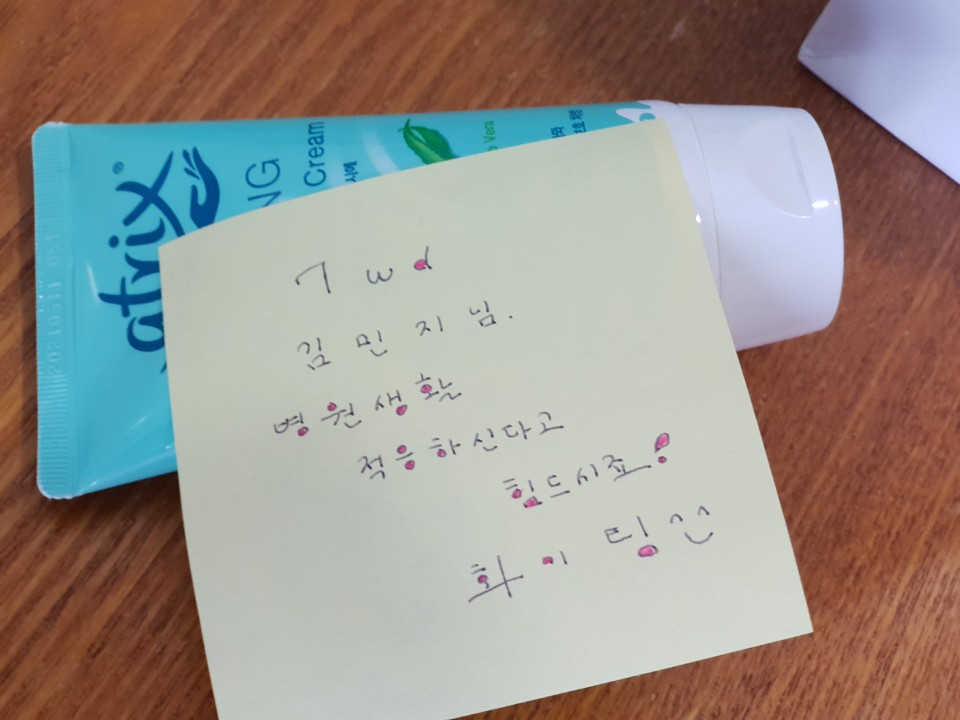 atrix®
NG
Cream
Vera
20210511 051
7 wd
김 민 지 님.
병원생활
적응하신다고
힘드시죠!
화 이 팅 ^^